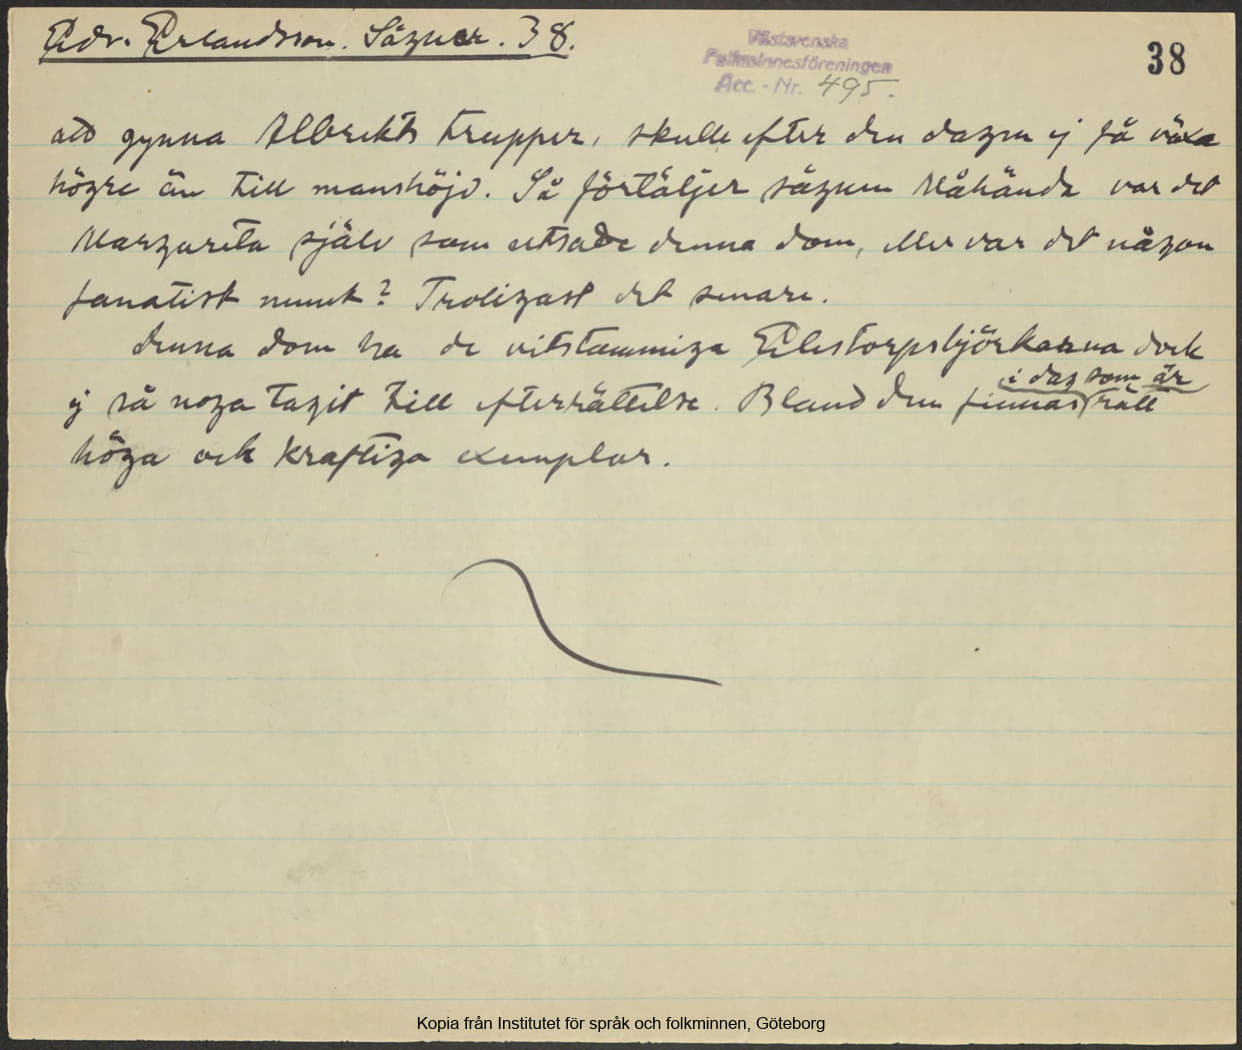 Edv. Erlandsson. Sägner. 38.
Västsvenska
Folkminnesföreningen
Acc. - Nr. 495.
38
att gynna Albrekts trupper, skulle efter den dagen ej få växa
högre än till manshöjd. Så förtäljer sägnen Måhända var det
Margareta själv som utsade denna dom, eller var det någon
fanatisk munk? Troligast det senare.
Denna dom ha de vitstammiga Elestorpsbjörkarna dock
i dag som är
ej så noga tagit till efterrättelse. Bland dem finnas rätt
höga och kraftiga exemplar.
Kopia från Institutet för språk och folkminnen, Göteborg